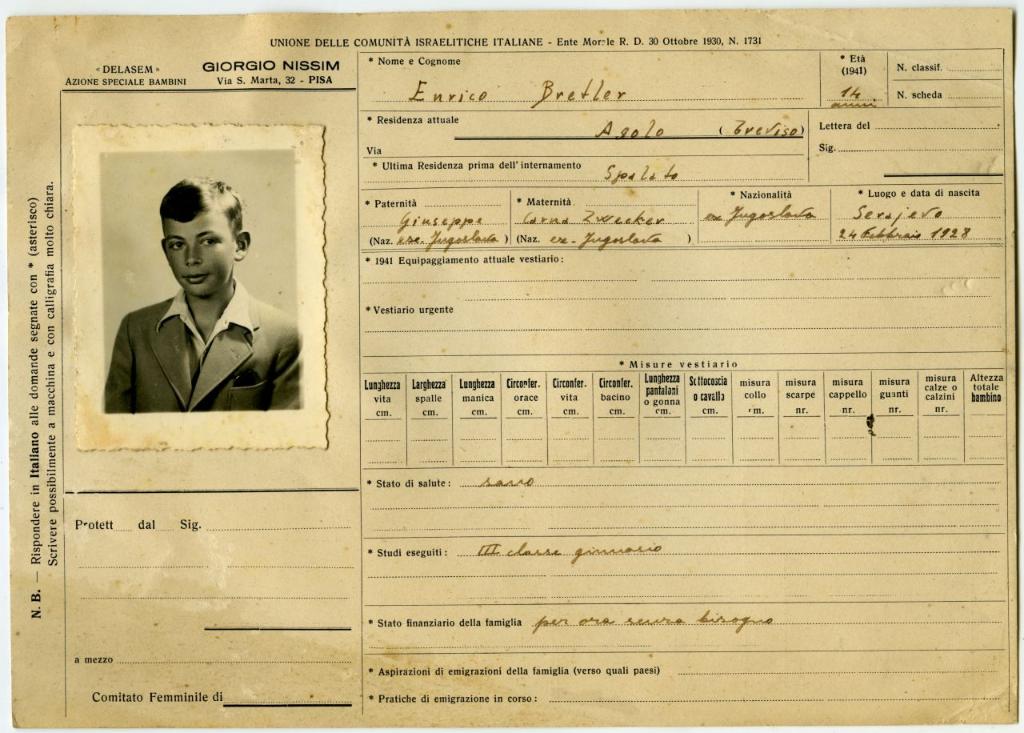 UNIONE DELLE COMUNITÀ ISRAELITICHE ITALIANE - Ente Morale R. D. 30 Ottobre 1930, N. 1731
«DELASEM»
AZIONE SPECIALE BAMBINI
GIORGIO NISSIM
Via S. Marta, 32 - PISA
* Nome e Cognome
Enrico Bretler
* Età
(1941)
14
anni
N. classif.
N. scheda
* Residenza attuale
Asolo (Treviso)
Via
Lettera del
Sig.
* Ultima Residenza prima dell'internamento
Spalato
* Paternità
Giuseppe
(Naz. exc. Jugoslavia)
* Maternità
Zwecker
(Naz. ex. Jugoslavia)
* Nazionalità
ex Jugoslavia
* Luogo e data di nascita
Serajevo
24 Febbraio 1928
* 1941 Equipaggiamento attuale vestiario:
* Vestiario urgente
* Misure vestiario
Lunghezza vita cm.
Larghezza spalle cm.
Lunghezza manica cm.
Circonfer. orace cm.
Circonfer. vita cm.
Circonfer. bacino cm.
Lunghezza pantaloni o gonna cm.
Sottocoscia o cavallo cm.
misura collo cm.
misura scarpe nr.
misura cappello nr.
misura guanti nr.
misura calze o calzini nr.
Altezza totale bambino
* Stato di salute: sano
* Studi eseguiti: III classe ginnasio
* Stato finanziario della famiglia per ora senza bisogno
* Aspirazioni di emigrazioni della famiglia (verso quali paesi)
* Pratiche di emigrazione in corso:
Protett dal Sig.
a mezzo
Comitato Femminile di
N. B. — Rispondere in Italiano alle domande segnate con * (asterisco)
Scrivere possibilmente a macchina e con calligrafia molto chiara.